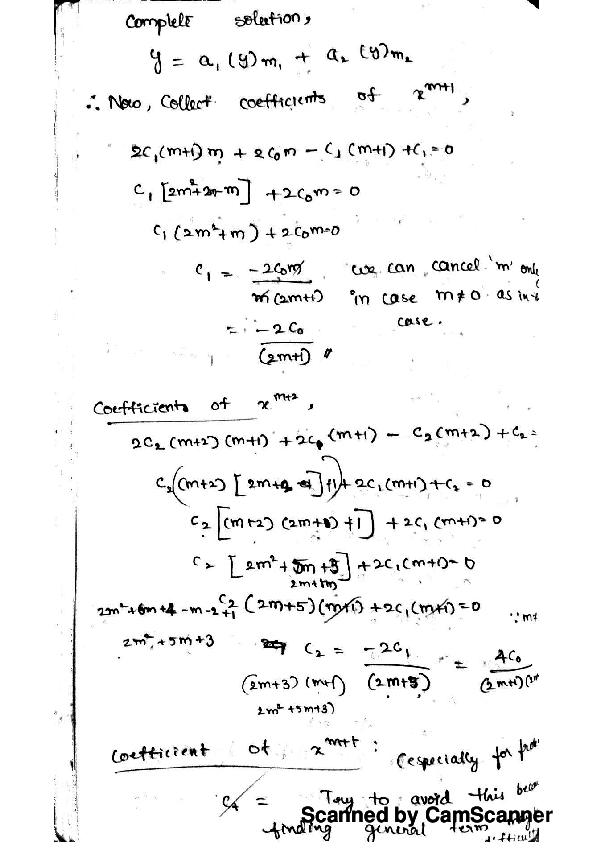 Complete solution,
y = a₁ (y)m₁ + a₂ (y)m₂
∴ Now, Collect coefficients of x^{m+1},
2C₁(m+1)m + 2C₀m - C₁(m+1) + C₁ = 0
C₁ [2m²+2m-m] + 2C₀m = 0
C₁ (2m²+m) + 2C₀m=0
C₁ = -2C₀m / m(2m+1) we can cancel 'm' only
in case m≠0 as in
= -2C₀ / (2m+1) case.
Coefficients of x^{m+2},
2C₂(m+2)(m+1) + 2C₁(m+1) - C₂(m+2) + C₂ =
C₂(m+2) [2m+2 ] + 2C₁(m+1) + C₂ = 0
C₂ [(m+2)(2m+1) +1] + 2C₁(m+1) = 0
C₂ [2m² + 5m + 3] + 2C₁(m+1) = 0
2m²+6m+4-m-2+1 C₂ (2m+5)(m+1) + 2C₁(m+1) = 0
2m²+5m+3
C₂ = -2C₁ / (2m+3) = 4C₀ / (2m+1)
(2m+3)(m+1)
2m²+5m+3)
Coefficient of x^{m+r} : (especially for
C₄ = Try to avoid this
finding general term
Scanned by CamScanner